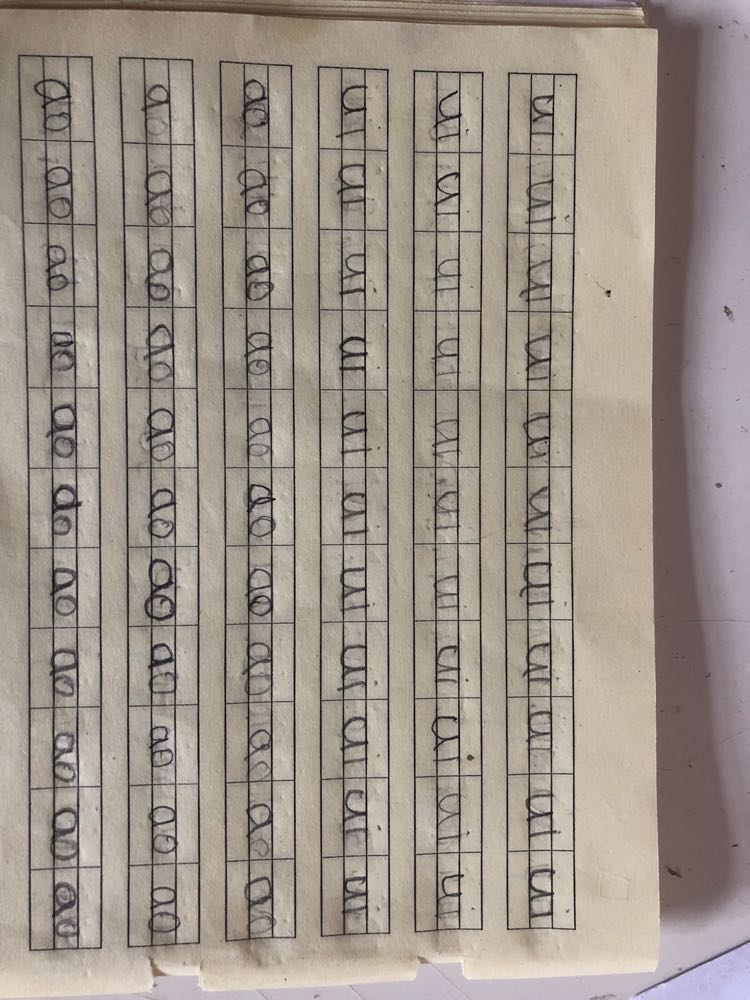 ui ui ui ui ui ui ui ui ui ui ui
ui ui ui ui ui ui ui ui ui ui ui
ui ui ui ui ui ui ui ui ui ui ui
ao ao ao ao ao ao ao ao ao ao ao
ao ao ao ao ao ao ao ao ao ao ao
ao ao ao ao ao ao ao ao ao ao ao